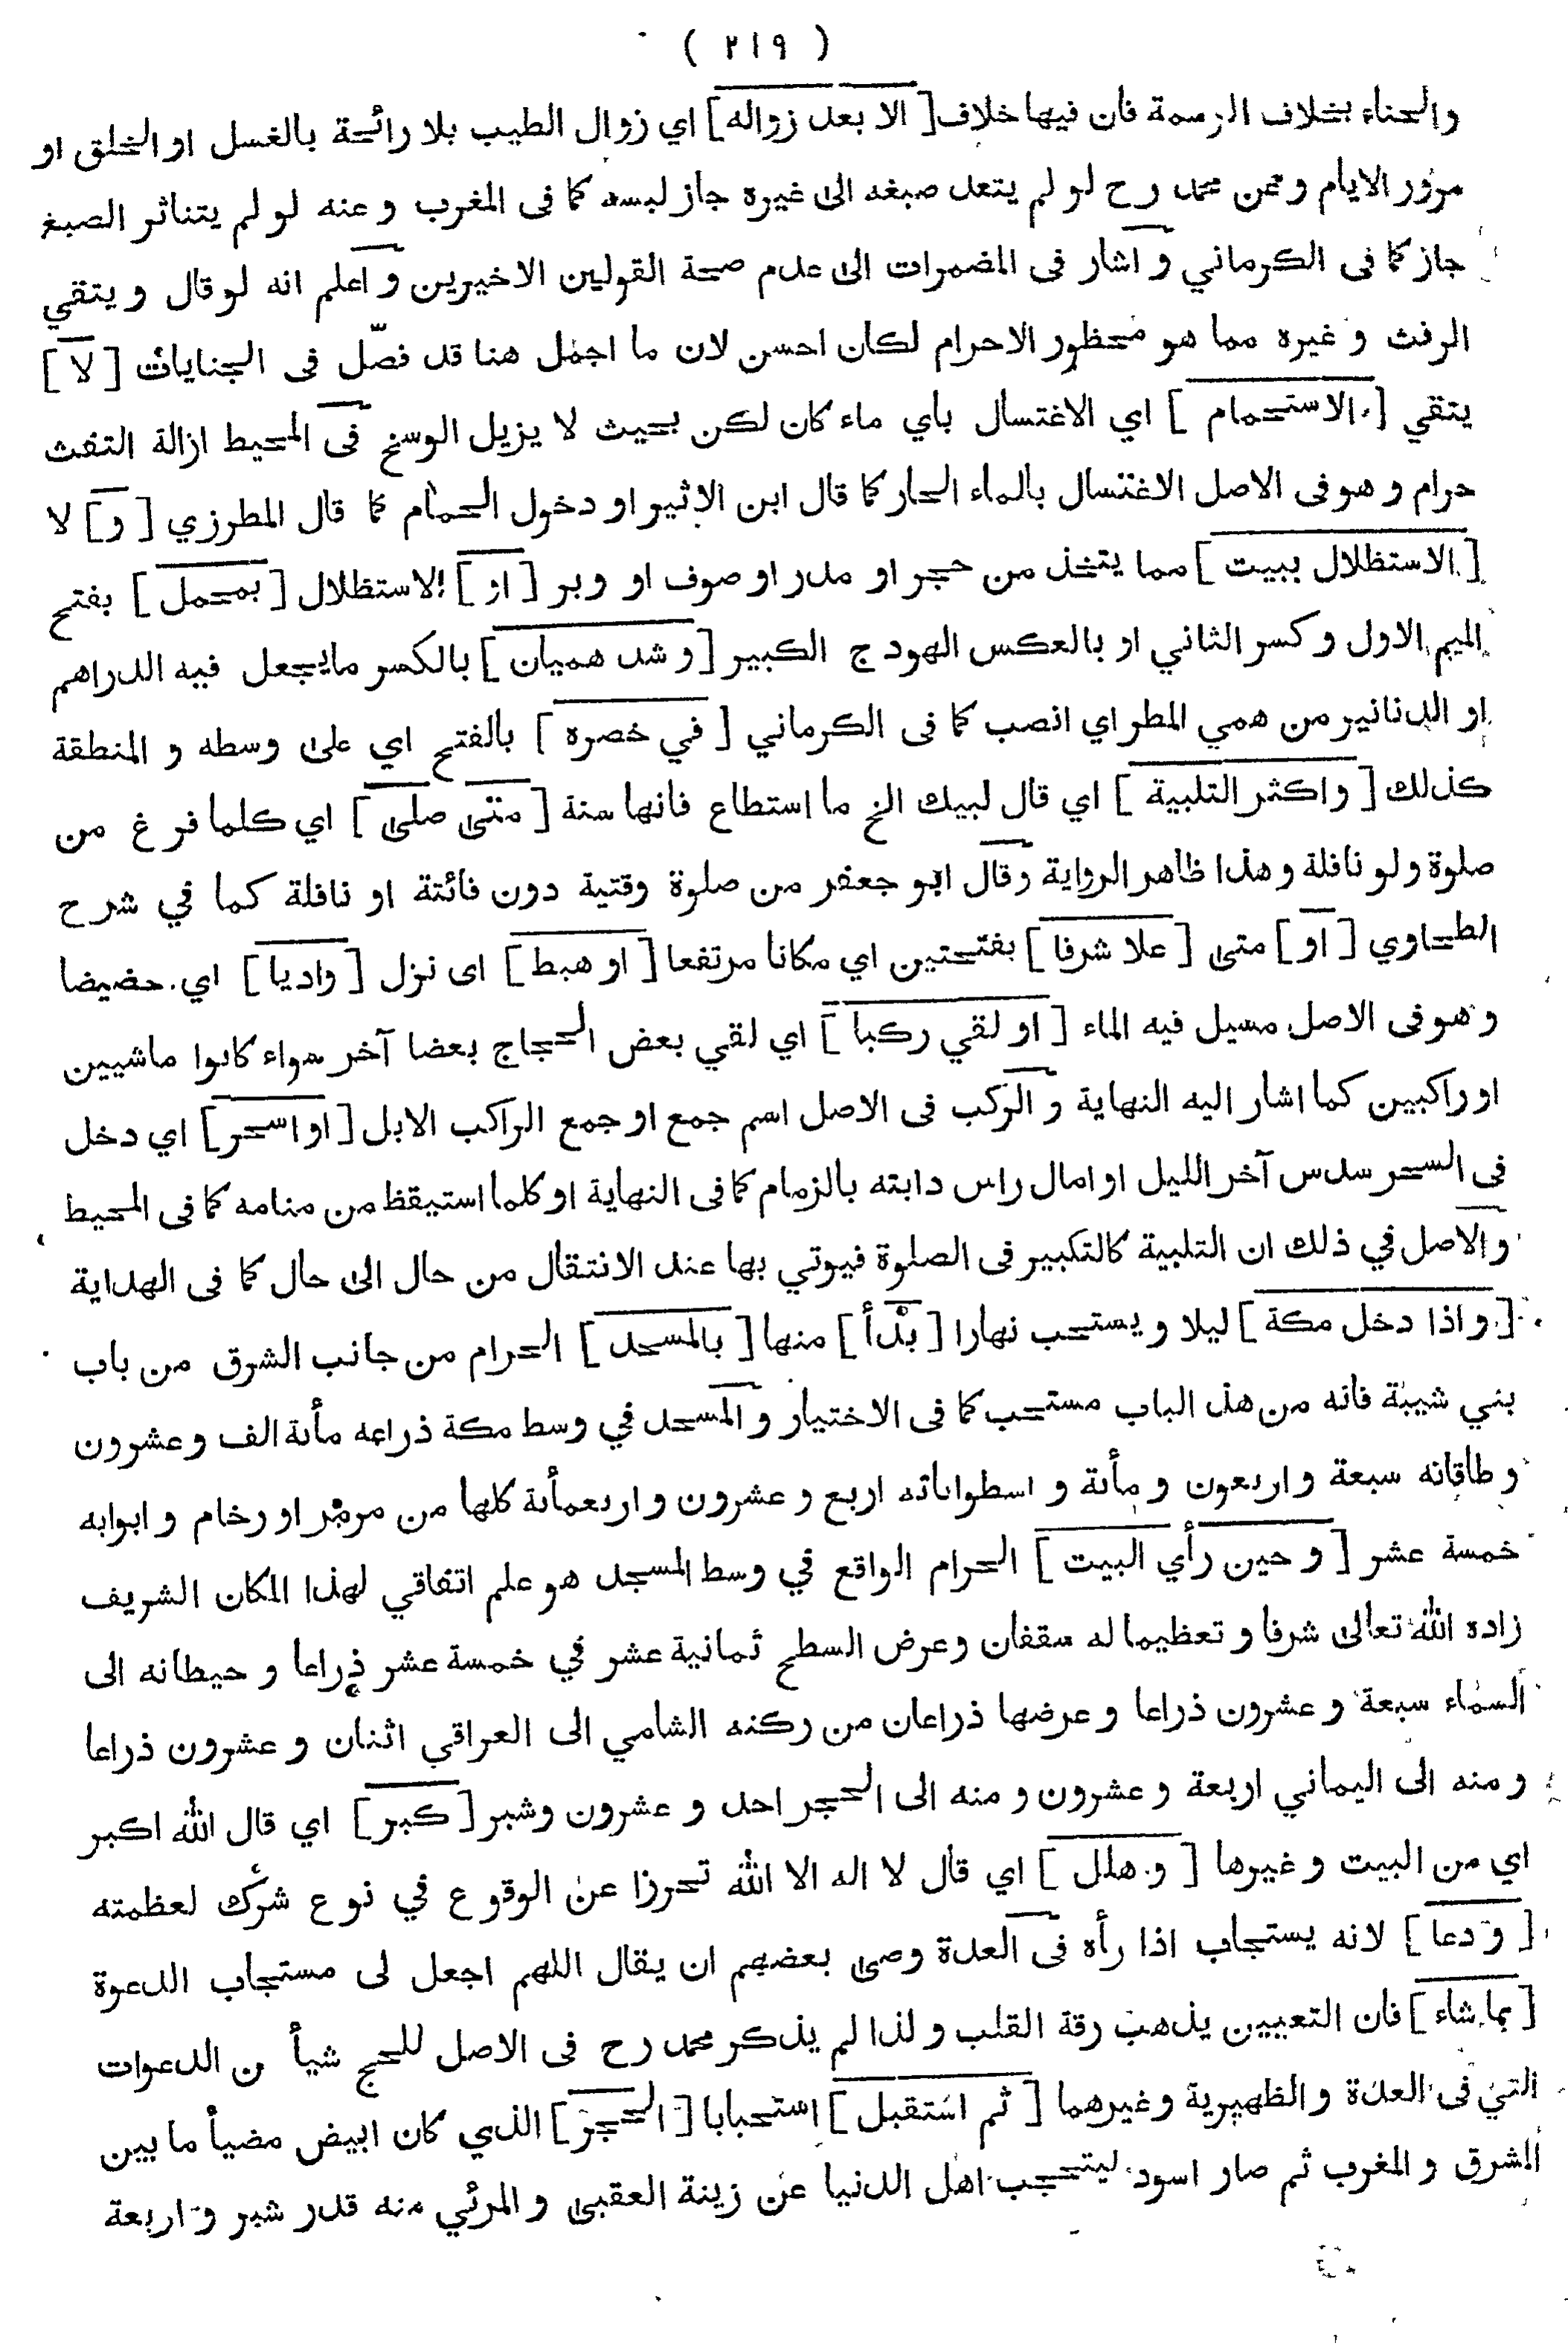 ( ٢١٩ )
والحناء بخلاف الرسمة فان فيها خلاف [ الا بعد زواله ] اي زوال الطيب بلا رائحة بالغسل او الخلق او
مرور الايام وعن محمد رح لو لم يتعد صبغه الى غيره جاز لبسه كما فى المغرب وعنه لو لم يتناثر الصبغ
جاز كما فى الكرماني و اشار فى المضمرات الى عدم صحة القولين الاخيرين و اعلم انه لو قال و يتقي
الرفث و غيره مما هو محظور الاحرام لكان احسن لان ما اجمل هنا قد فصّل فى الجنايات [ لا ]
يتقي [ الاستحمام ] اي الاغتسال باي ماء كان لكن بحيث لا يزيل الوسخ فى المحيط ازالة التفث
حرام و هو فى الاصل الاغتسال بالماء الحار كما قال ابن الاثير او دخول الحمام كما قال المطرزي [ و ] لا
[ الاستظلال ببيت ] مما يتخذ من حجر او مدر او صوف او وبر [ او ] الاستظلال [ بمحمل ] بفتح
الميم الاول و كسر الثاني او بالعكس الهودج الكبير [ و شد هميان ] بالكسر ما يجعل فيه الدراهم
او الدنانير من همي المطر اي انصب كما فى الكرماني [ في خصره ] بالفتح اي على وسطه و المنطقة
كذلك [ و اكثر التلبية ] اي قال لبيك الخ ما استطاع فانها سنة [ متى صلى ] اي كلما فرغ من
صلوة ولو نافلة و هذا ظاهر الرواية وقال ابو جعفر من صلوة وقتية دون فائتة او نافلة كما في شرح
الطحاوي [ او ] متى [ علا شرفا ] بفتحتين اي مكانا مرتفعا [ او هبط ] اى نزل [ واديا ] اي حضيضا
و هو فى الاصل مسيل فيه الماء [ او لقي ركبا ] اي لقي بعض الحجاج بعضا آخر سواء كانوا ماشيين
او راكبين كما اشار اليه النهاية و الركب فى الاصل اسم جمع او جمع الراكب الابل [ او اسحر ] اي دخل
فى السحر سدس آخر الليل او امال راس دابته بالزمام كما فى النهاية او كلما استيقظ من منامه كما فى المحيط
و الاصل في ذلك ان التلبية كالتكبير فى الصلوة فيوتي بها عند الانتقال من حال الى حال كما فى الهداية
[ و اذا دخل مكة ] ليلا و يستحب نهارا [ بدأ ] منها [ بالمسجد ] الحرام من جانب الشرق من باب
بني شيبة فانه من هذ الباب مستحب كما فى الاختيار و المسجد في وسط مكة ذراعه مأىة الف و عشرون
و طاقاته سبعة و اربعون و مأىة و اسطواناته اربع و عشرون و اربعمأىة كلها من مرمر او رخام و ابوابه
خمسة عشر [ و حين رأي البيت ] الحرام الواقع في وسط المسجد هو علم اتفاقي لهذا المكان الشريف
زاده الله تعالى شرفا و تعظيما له سقفان وعرض السطح ثمانية عشر في خمسة عشر ذراعا و حيطانه الى
السماء سبعة و عشرون ذراعا و عرضها ذراعان من ركنه الشامي الى العراقي اثنان و عشرون ذراعا
و منه الى اليماني اربعة و عشرون و منه الى الحجر احد و عشرون وشبر [ كبر ] اي قال الله اكبر
اي من البيت و غيرها [ و هلل ] اي قال لا اله الا الله تحرزا عن الوقوع في نوع شرك لعظمته
[ و دعا ] لانه يستجاب اذا رأه فى العدة وصى بعضهم ان يقال اللهم اجعل لى مستجاب الدعوة
[ بما شاء ] فان التعيين يذهب رقة القلب و لذا لم يذكر محمد رح فى الاصل للحج شيأ من الدعوات
التي فى العدة و الظهيرية وغيرهما [ ثم استقبل ] استحبابا [ الحجر ] الذي كان ابيض مضيأ ما بين
المشرق و المغرب ثم صار اسود ليتحجب اهل الدنيا عن زينة العقبى و المرئي منه قدر شبر و اربعة